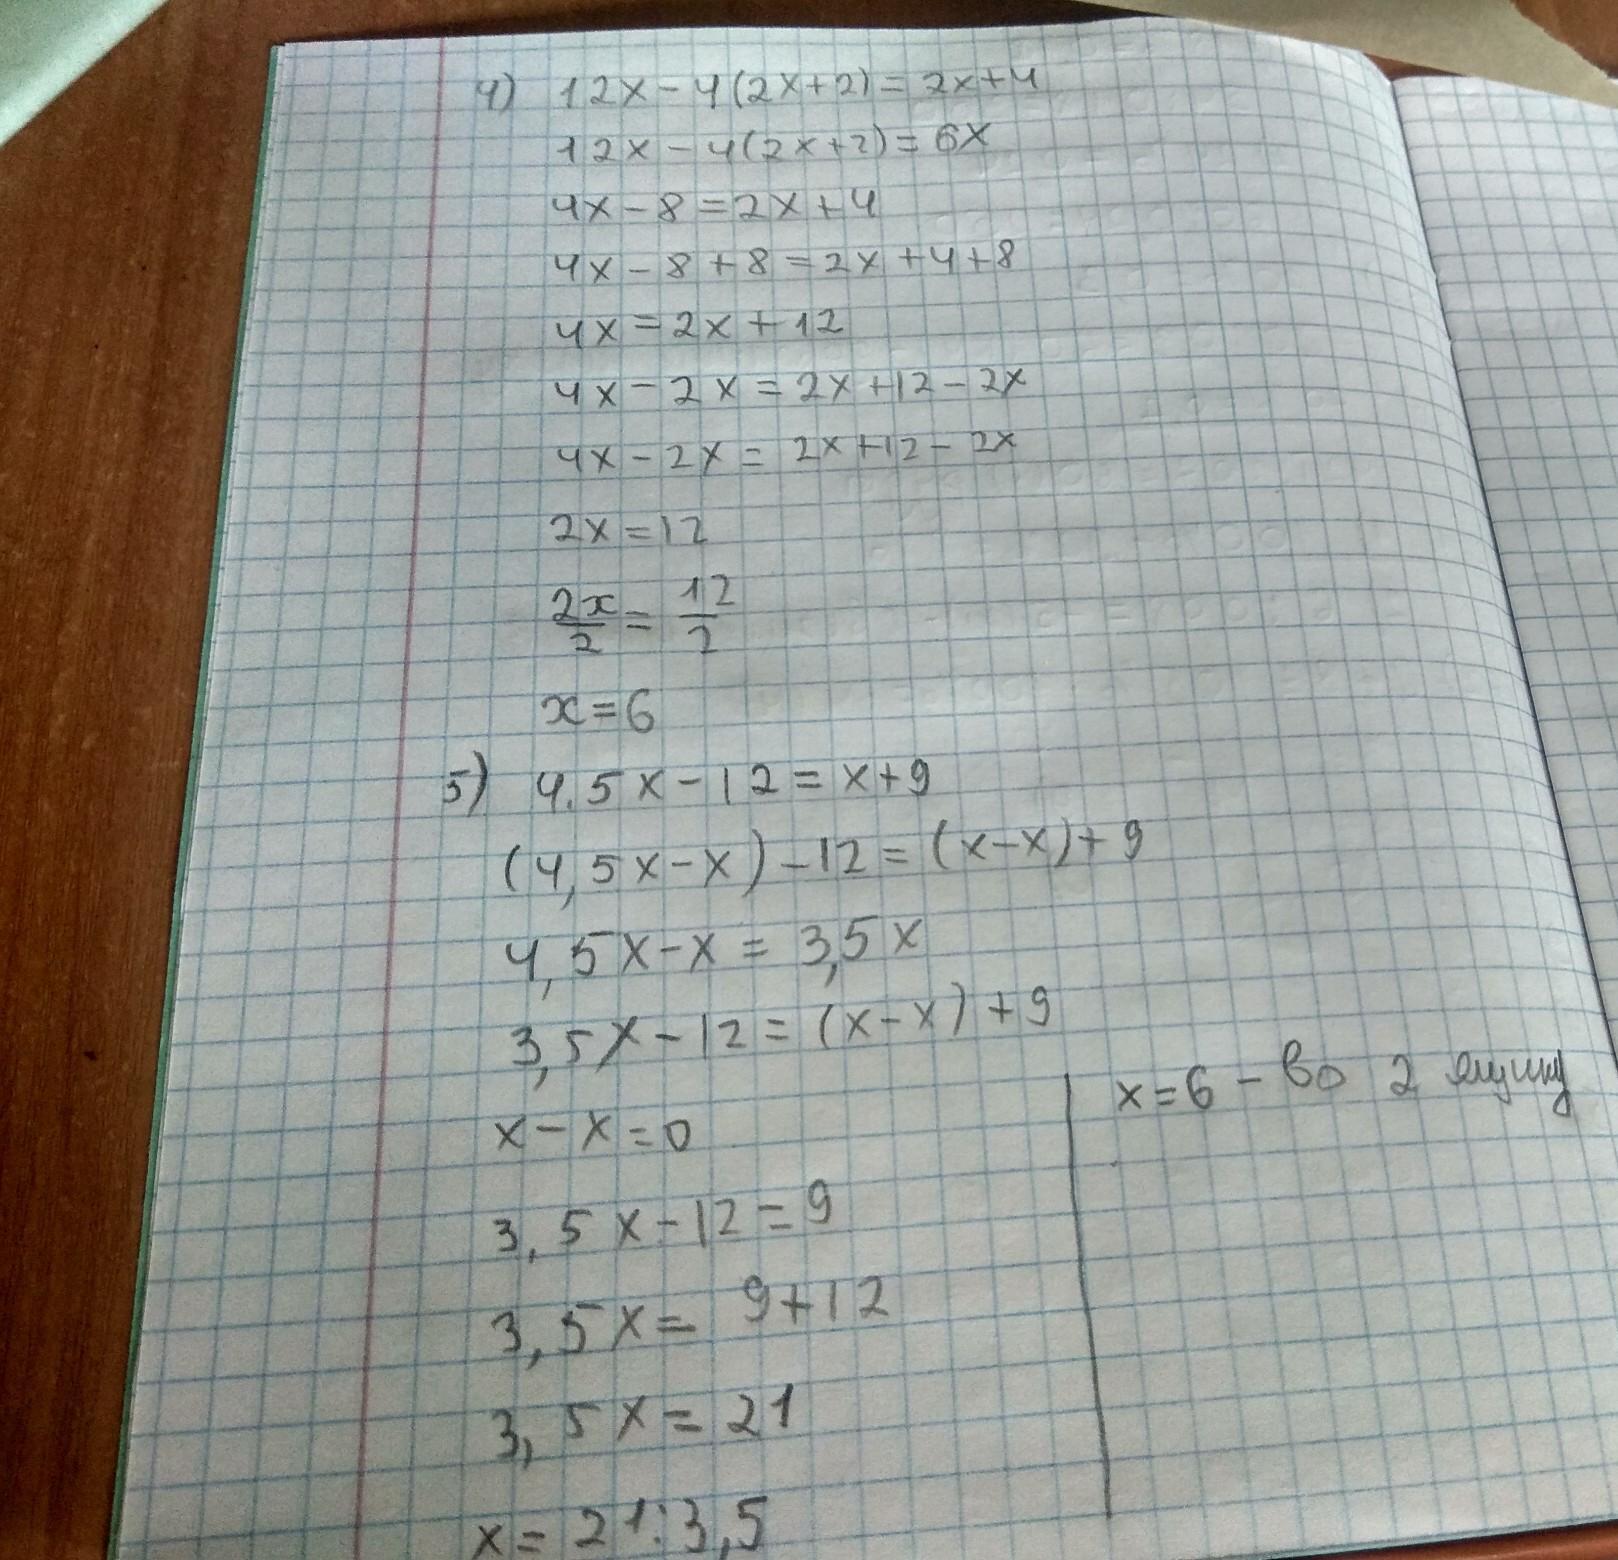 4) 12x-4(2x+2)=2x+4
12x-4(2x+2)=6x
4x-8=2x+4
4x-8+8=2x+4+8
4x=2x+12
4x-2x=2x+12-2x
4x-2x=2x+12-2x
2x=12
2x/2=12/2
x=6
5) 4.5x-12=x+9
(4,5x-x)-12=(x-x)+9
4,5x-x=3,5x
3,5x-12=(x-x)+9
x-x=0
3,5x-12=9
3,5x=9+12
3,5x=21
x=21:3,5
x=6-во 2 ящику